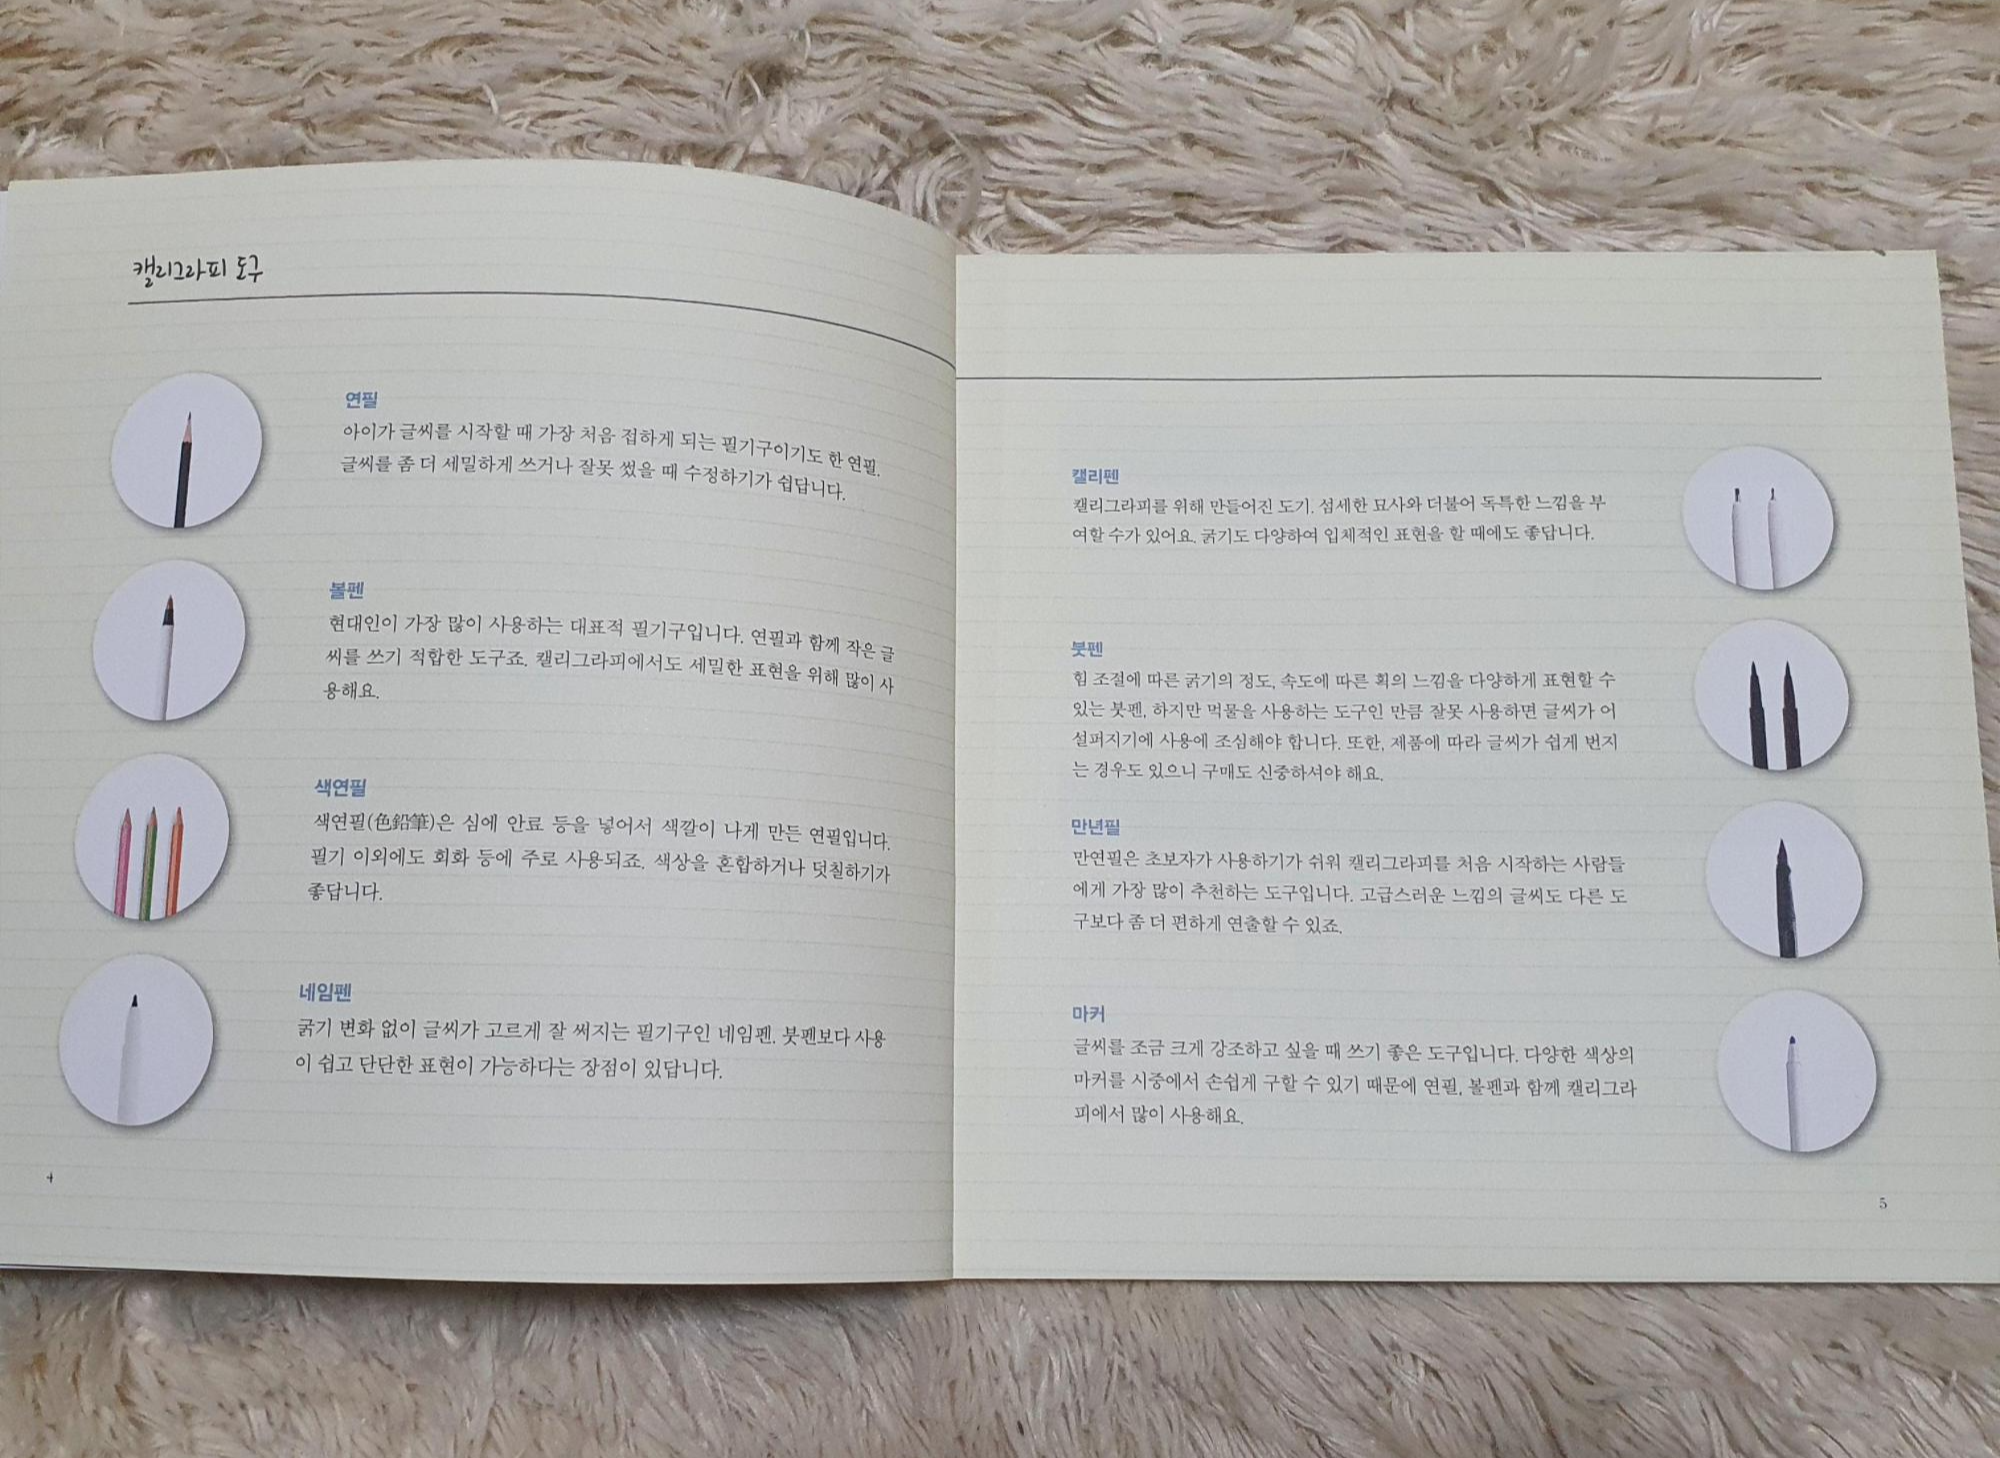 캘리그라피 도구
연필
아이가 글씨를 시작할 때 가장 처음 접하게 되는 필기구이기도 한 연필.
글씨를 좀 더 세밀하게 쓰거나 잘못 썼을 때 수정하기가 쉽답니다.
볼펜
현대인이 가장 많이 사용하는 대표적 필기구입니다. 연필과 함께 작은 글
씨를 쓰기 적합한 도구죠. 캘리그라피에서도 세밀한 표현을 위해 많이 사
용해요.
색연필
색연필(色鉛筆)은 심에 안료 등을 넣어서 색깔이 나게 만든 연필입니다.
필기 이외에도 회화 등에 주로 사용되죠. 색상을 혼합하거나 덧칠하기가
좋답니다.
네임펜
굵기 변화 없이 글씨가 고르게 잘 써지는 필기구인 네임펜. 붓펜보다 사용
이 쉽고 단단한 표현이 가능하다는 장점이 있답니다.
4
캘리펜
캘리그라피를 위해 만들어진 도기. 섬세한 묘사와 더불어 독특한 느낌을 부
여할 수가 있어요. 굵기도 다양하여 입체적인 표현을 할 때에도 좋답니다.
붓펜
힘 조절에 따른 굵기의 정도, 속도에 따른 획의 느낌을 다양하게 표현할 수
있는 붓펜, 하지만 먹물을 사용하는 도구인 만큼 잘못 사용하면 글씨가 어
설퍼지기에 사용에 조심해야 합니다. 또한, 제품에 따라 글씨가 쉽게 번지
는 경우도 있으니 구매도 신중하셔야 해요.
만년필
만연필은 초보자가 사용하기가 쉬워 캘리그라피를 처음 시작하는 사람들
에게 가장 많이 추천하는 도구입니다. 고급스러운 느낌의 글씨도 다른 도
구보다 좀 더 편하게 연출할 수 있죠.
마커
글씨를 조금 크게 강조하고 싶을 때 쓰기 좋은 도구입니다. 다양한 색상의
마커를 시중에서 손쉽게 구할 수 있기 때문에 연필, 볼펜과 함께 캘리그라
피에서 많이 사용해요.
5